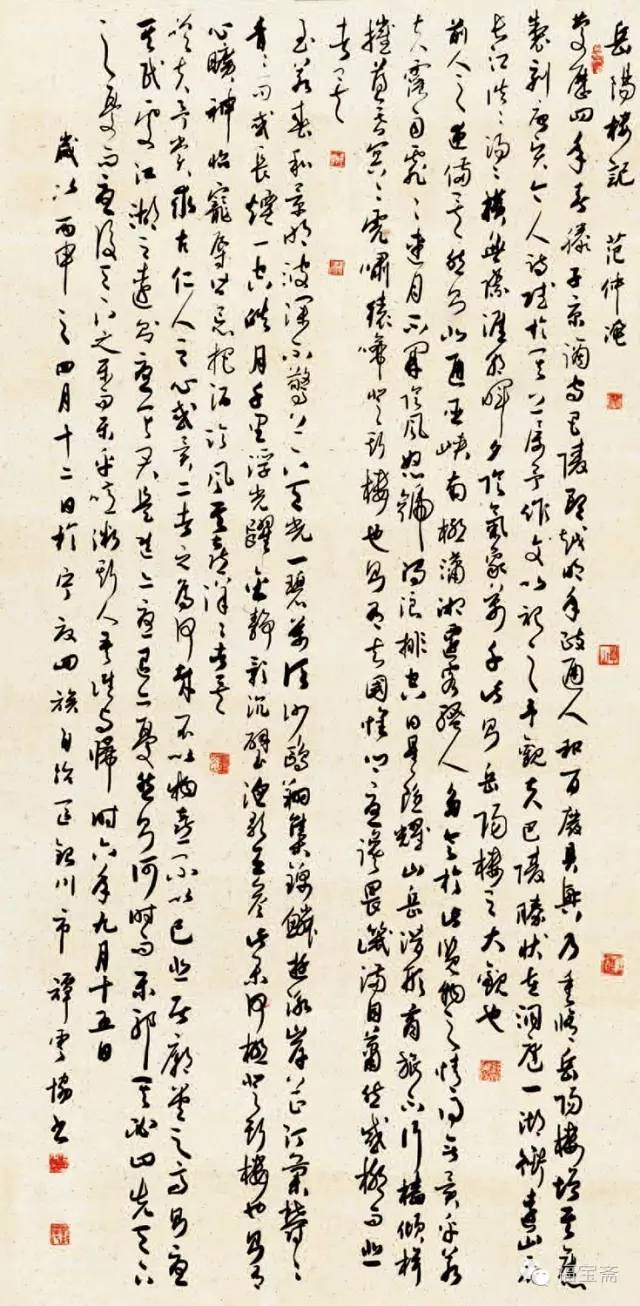 岳陽樓記 范仲淹
慶歷四年春滕子京謫守巴陵郡越明年政通人和百廢具興乃重修岳陽樓增其舊
製刻唐賢今人詩賦於其上屬予作文以記之予觀夫巴陵勝狀在洞庭一湖銜遠山吞
長江浩浩湯湯橫無際涯朝暉夕陰氣象萬千此則岳陽樓之大觀也
前人之述備矣然則北通巫峽南極瀟湘遷客騷人多會於此覽物之情得無異乎若
夫霪雨霏霏連月不開陰風怒號濁浪排空日星隱耀山岳潛形商旅不行檣傾楫
摧薄暮冥冥虎嘯猿啼登斯樓也則有去國懷鄉憂讒畏譏滿目蕭然感極而悲
者矣
至若春和景明波瀾不驚上下天光一碧萬頃沙鷗翔集錦鱗游泳岸芷汀蘭郁郁
青青而或長煙一空皓月千里浮光躍金靜影沉璧漁歌互答此樂何極登斯樓也則有
心曠神怡寵辱皆忘把酒臨風其喜洋洋者矣
嗟夫予嘗求古仁人之心或異二者之為何哉不以物喜不以己悲居廟堂之高則憂
其民處江湖之遠則憂其君是進亦憂退亦憂然則何時而樂耶其必曰先天下
之憂而憂後天下之樂而樂乎噫微斯人吾誰與歸時六年九月十五日
歲次丙申之四月十二日於寧夏回族自治區銀川市